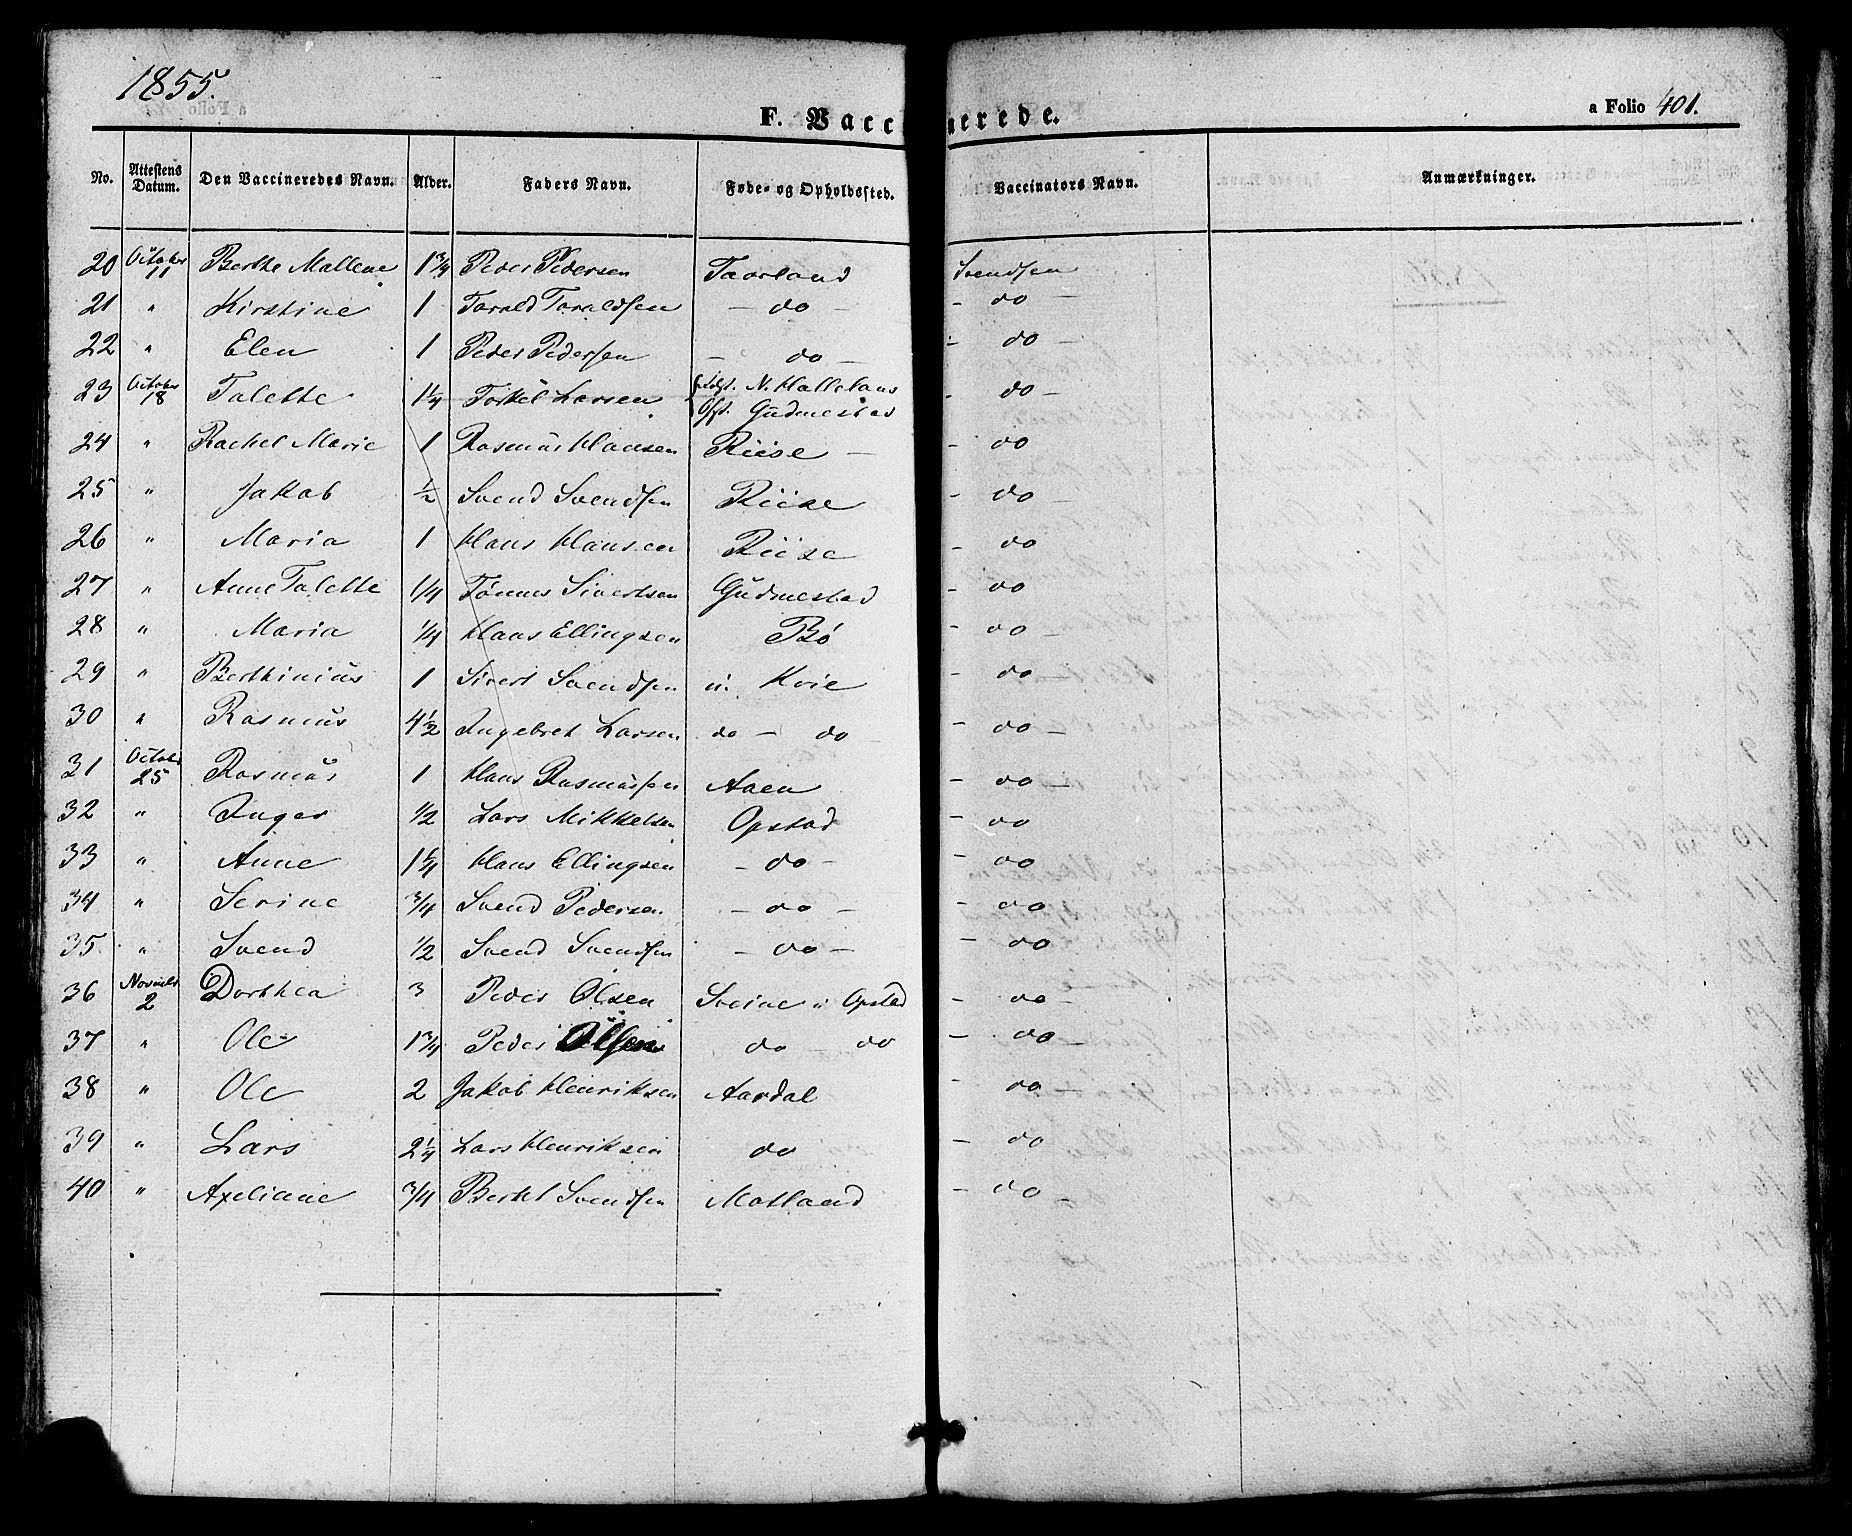 1855.
F. Vaccinerede.
a Folio 401.
No. Attestens Datum. Den Vaccineredes Navn. Alder. Faders Navn. Føde- og Opholdssted. Vaccinators Navn. Anmærkninger.
20 October 11 Berthe Mallene 1 3/4 Peder Pedersen Taarland Svendsen
21 " Kirstine 1 Tarald Taraldsen - do - - do -
22 " Elen 1 Peder Pedersen - do - - do -
23 October 18 Talette 1 1/4 Torkel Larsen Fødst. N. Hallelans Ofst. Gudmestad - do -
24 " Rachel Marie 1 Rasmus Hansen Riise - - do
25 " Jakob 1/2 Svend Svendsen Riise - do -
26 " Maria 1 Hans Hansen Riise - do
27 " Anne Talette 1/4 Tønnes Sivertsen Gudmestad - do
28 " Maria 1/4 Hans Ellingsen Bø - do -
29 " Berthinius 1 Sivert Svendsen in. Hvie - do
30 " Rasmus 4 1/2 Ingebret Larsen do - do - do -
31 October 25 Rasmus 1 Hans Rasmussen Aaen - do -
32 " Inger 1/2 Lars Mikkelsen Opstad - do
33 " Anne 1 1/4 Hans Ellingsen - do - - do
34 " Serine 3/4 Svend Pedersen - do - - do
35. " Svend 1/2 Svend Svendsen - do - - do
36 November 2 Dorthea 3 Peder Olsen Sveine u Opstad - do -
37 " Ole 1 3/4 Peder Olsen do - do - do -
38 " Ole 2 Jakob Henriksen Aardal - do -
39 " Lars 2 1/4 Lars Henriksen do - do
40 " Axeliane 3/4 Bertel Svendsen Motland - do -